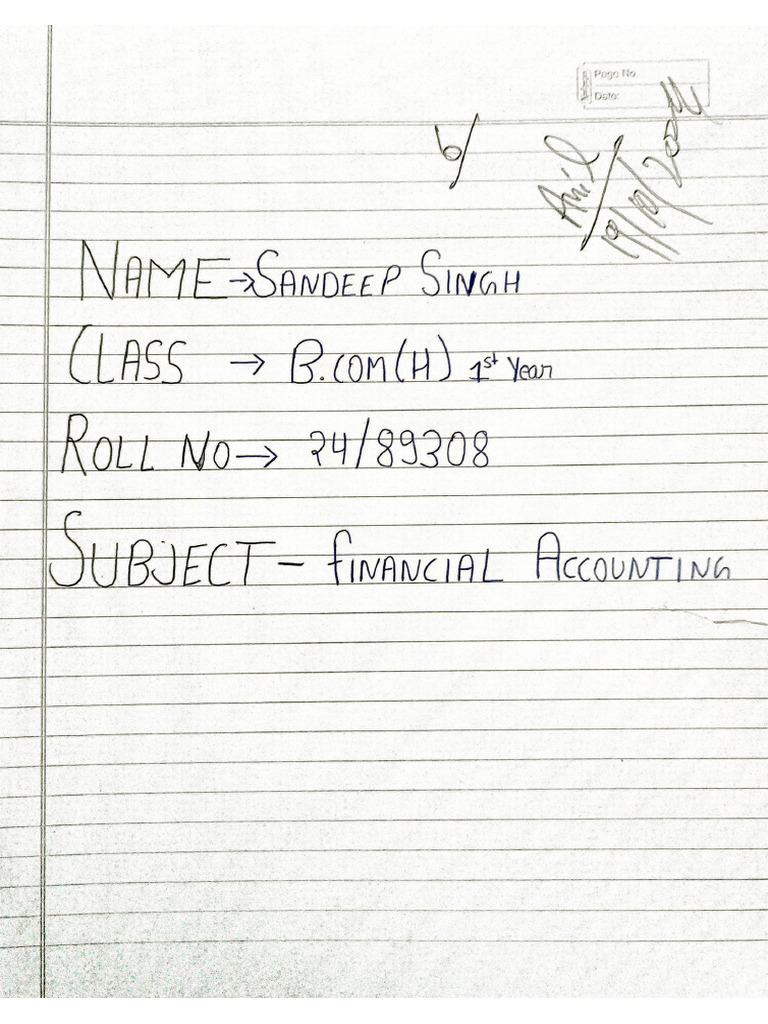 Page No
Date:
6/
Anil
19/10/2024
NAME → SANDEEP SINGH
CLASS → B.COM(H) 1st Year
ROLL NO → 24/89308
SUBJECT - FINANCIAL ACCOUNTING